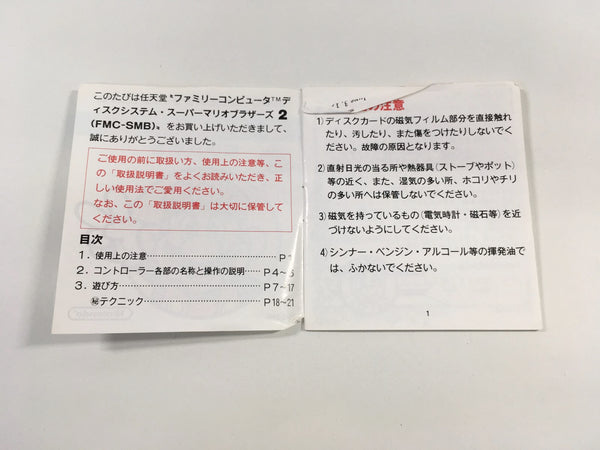 このたびは任天堂〝ファミリーコンピュータ™デ
ィスクシステム・スーパーマリオブラザーズ 2
(FMC-SMB)〟をお買い上げいただきまして、
誠にありがとうございました。
ご使用の前に取扱い方、使用上の注意等、こ
の「取扱説明書」をよくお読みいただき、正
しい使用法でご愛用ください。
なお、この「取扱説明書」は大切に保管して
ください。
目次
1. 使用上の注意 P 1
2. コントローラー各部の名称と操作の説明 P 4〜6
3. 遊び方 P 7〜17
㊙テクニック P 18〜21
の注意
1)ディスクカードの磁気フィルム部分を直接触れ
たり、汚したり、また傷をつけたりしないでく
ださい。故障の原因となります。
2)直射日光の当る所や熱器具(ストーブやポット)
等の近く、また、湿気の多い所、ホコリやチリ
の多い所へは保管しないでください。
3)磁気を持っているもの(電気時計・磁石等)を近
づけないようにしてください。
4)シンナー・ベンジン・アルコール等の揮発油で
は、ふかないでください。
1